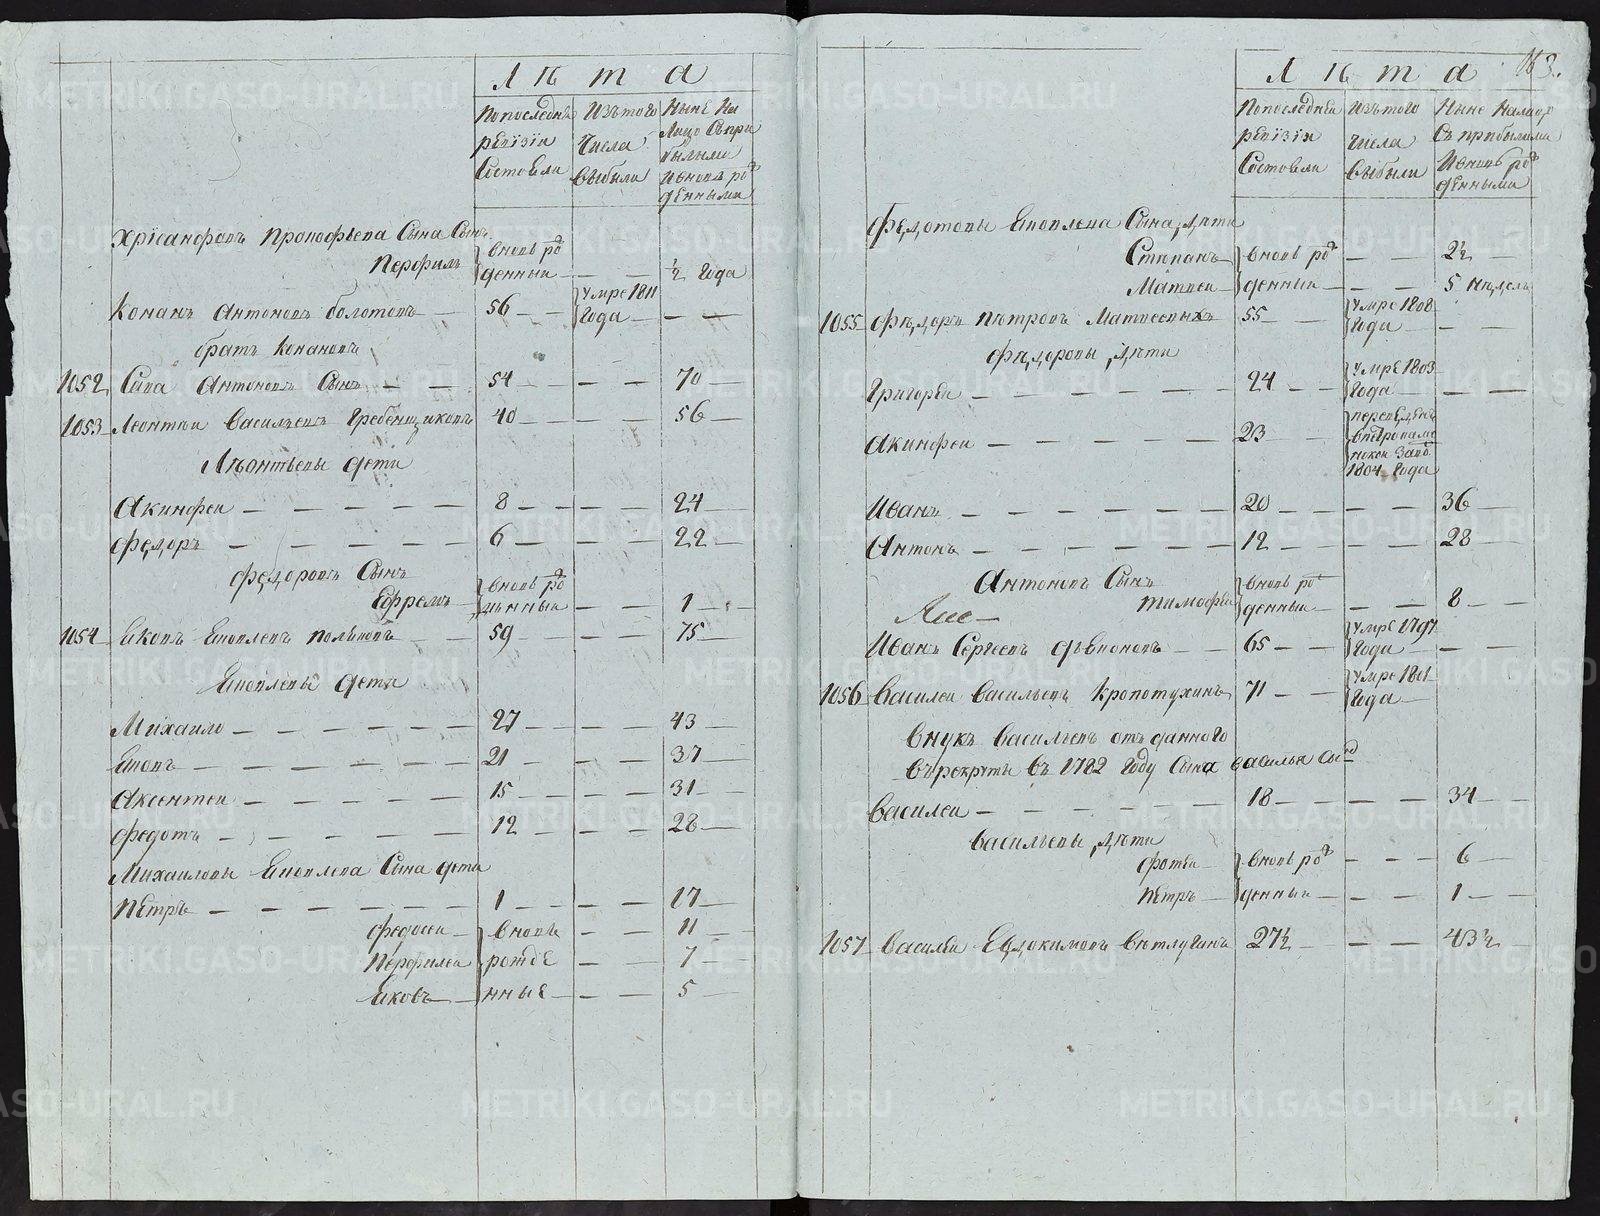 Лѣта
По последнѣй ревiзiи Состояли
Изътого Числа Выбыли
Нынѣ На Лицо Съ прибылыми и вновь рожденными
Хрiсанфовъ Прокофьева Сына Сынъ
Перфилъ вновь рожденный — — ½ года
Конанъ Антоновъ Болотовъ — 56 — Умре 1811 Года — —
братъ Конановъ
1052 Сава Антоновъ Сынъ — — 54 — — — 70 —
1053 Леонтеи Васильевъ Гребенщиковъ 40 — — — 56 —
Леонтьевы дети
Акинфеи — — — — — 8 — — — 24 —
Федоръ — — — — — 6 — — — 22 —
Федоровъ Сынъ
Ефремъ вновь рожденный — — 1 —
1054 Яковъ Яковлевъ Польковъ — 59 — — — 75 —
Яковлевы дети
Михаило — — — — — 27 — — — 43 —
Яковъ — — — — — 21 — — — 37 —
Аксентеи — — — — — 15 — — — 31 —
Федотъ — — — — — 12 — — — 28 —
Михаиловы Яковлева Сына дети
Петръ — — — — — 1 — — — 17 —
Федосеи — вновь — — 11 —
Перфилеи рожде — — 7 —
Яковъ — нные — — 5 —
163.
Лѣта
По последнѣй ревiзiи Состояли
Изътого Числа Выбыли
Ныне На лицо Съ прибылыми И вновь рожденными
Федотовы Яковлева Сына дѣти
Степанъ — вновь ро — — 2½ —
Матвеи — денныи — — 5 недель
1055 Федоръ Петровъ Матвеевыхъ 55 — Умре 1808 Года — —
Федоровы дѣти
Григореи — — — — — 24 — Умре 1803 Года — —
Акинфеи — — — — — 23 — переведенъ 1804 Года
Иванъ — — — — — 20 — — — 36 —
Антонъ — — — — — 12 — — — 28 —
Антоновъ Сынъ
Тимофеи вновь рожденныи — — 8 —
Иванъ Сергеевъ — — 65 — Умре 1797 Года — —
1056 Василеи Васильевъ Кропотухинъ 71 — Умре 1801 Года
Внукъ Васильевъ отъ данного
Въ рекруты Въ 1782 Году Сына василья Сынъ
Василеи — — — — 18 — — — 34 —
Васильевы дѣти
Фотеи — вновь ро — — 6 —
Петръ — денныи — — 1 —
1057 Василеи Евдокимовъ Ветлугинъ 27½ — — — 43½ —
METRIKI.GASO-URAL.RU